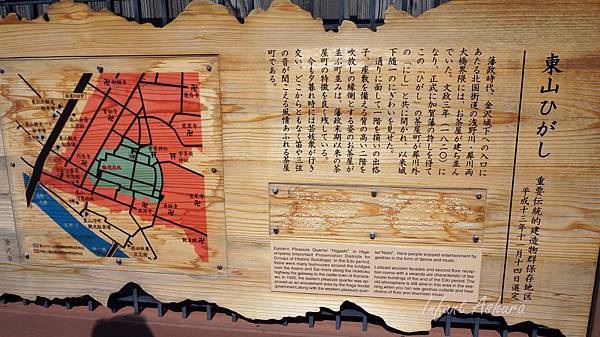 東山ひがし
重要伝統的建造物群保存地区
平成十三年十一月十四日選定
藩政時代、金沢城下への入口に
あたる北国街道の浅野川、犀川両
大橋界隈には、お茶屋が建ち並ん
でいた。文政三年(一八二〇)に
なり、正式に加賀藩の許しを得て
この「ひがし」の茶屋町が犀川外
の「にし」と共に開かれ、以来城
下随一のにぎわいを見せた。
通りに面して一階を揃いの出格
子、座敷を備えた背の高い二階を
吹放しの縁側とする姿のお茶屋が
並ぶ町並みは、藩政末期以来の茶
屋町の特徴を良く残している。
今も夕暮れ時には芸妓衆が行き
交い、どこからともなく笛や三弦
の音が聞こえる風情あふれる茶屋
町である。
Eastern Pleasure Quarter "Higashi" in Higa-
shiyama (Important Preservation Districts for
Groups of Historic Buildings) In the Edo period,
there were many teahouses around the bridges
over the Asano and Sai rivers along the Hokkoku
highway, the gateway to the castle town of Kanaza-
wa. In 1820, the eastern pleasure quarter was ap-
proved as an amusement area by the Kaga feudal
government, along with the western pleasure quar-
ter "Nishi". Here people enjoyed entertainment by
geishas in the form of dance and music.
Latticed wooden facades and second floor recep-
tion rooms with a veranda are characteristic of tea-
house buildings of the end of the Edo period. The
old atmosphere is still alive in this area in the eve-
ning when you can see geishas outside and hear
strains of flute and shamisen music.
Infani Ashura